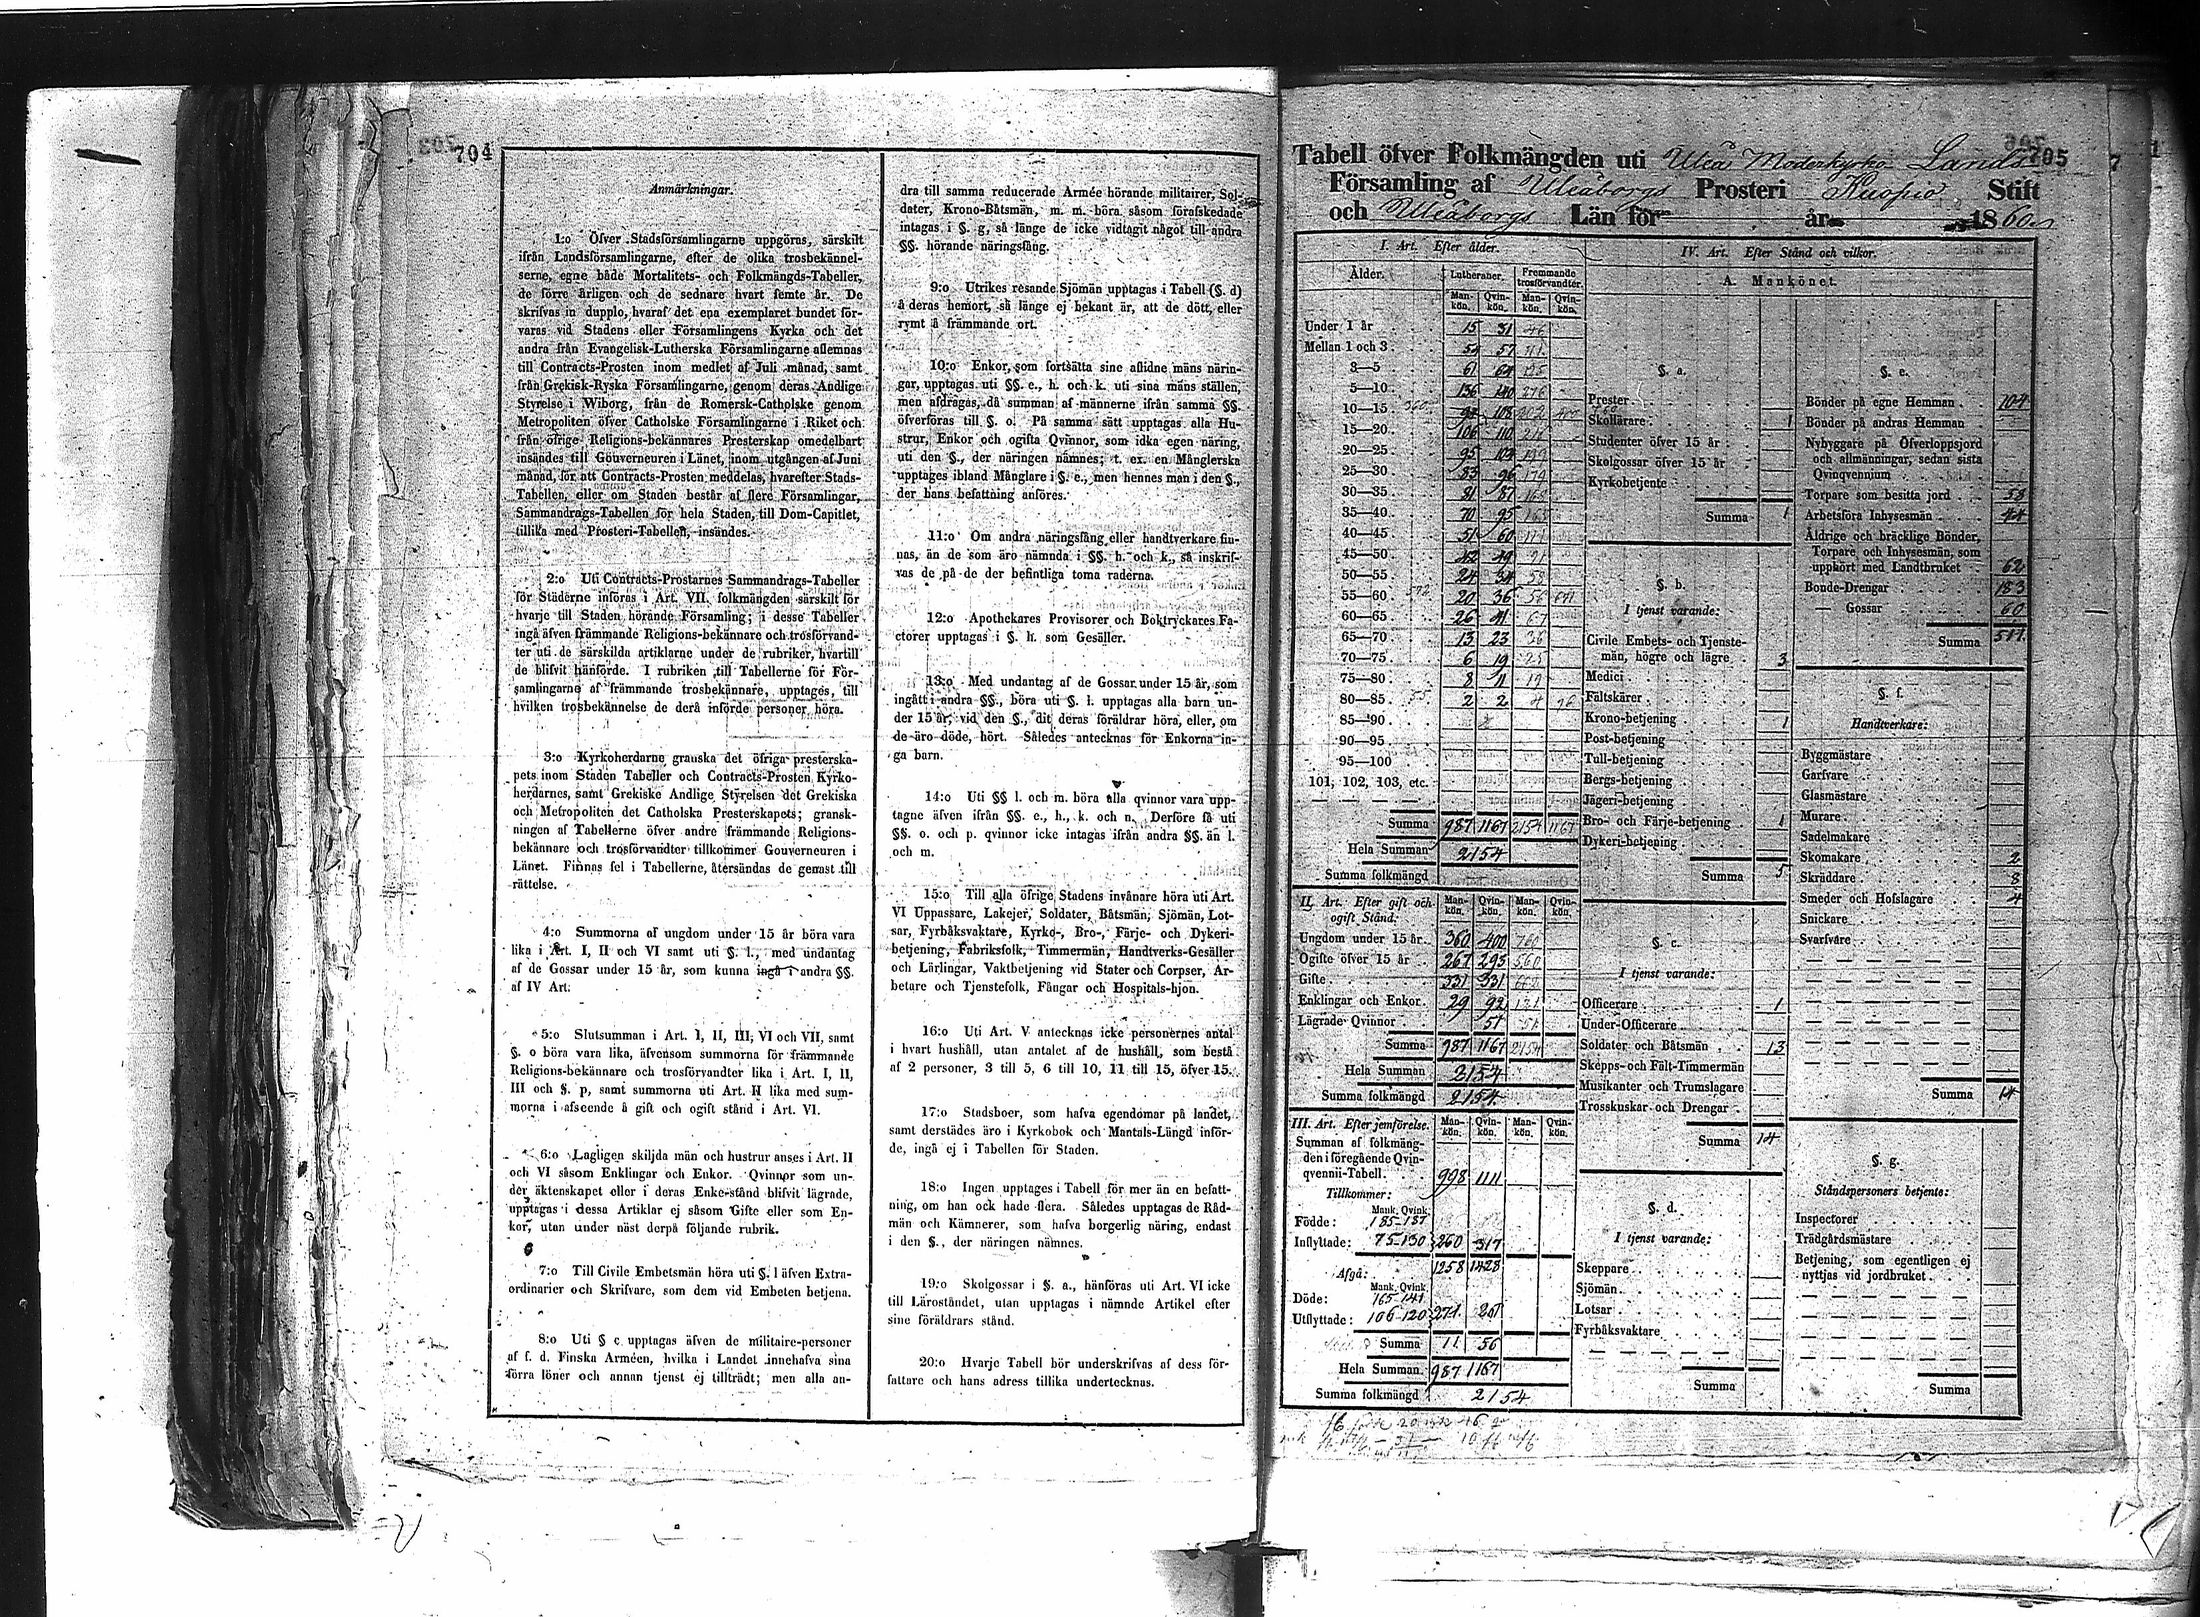 704
Anmärkningar.
1:o Öfver Stadsförsamlingarne uppgöras, särskilt
ifrån Landsförsamlingarne, efter de olika trosbekännel-
serne, egne både Mortalitets- och Folkmängds-Tabeller,
de förre årligen och de sednare hvart femte år. De
skrifvas in dupplo, hvaraf det ena exemplaret bundet för-
varas vid Stadens eller Församlingens Kyrka och det
andra från Evangelisk-Lutherska Församlingarne aflemnas
till Contracts-Prosten inom medlet af Juli månad, samt
från Grekisk-Ryska Församlingarne, genom deras Andlige
Styrelse i Wiborg, från de Romersk-Catholske genom
Metropoliten öfver Catholske Församlingarne i Riket och
från öfrige Religions-bekännares Presterskap omedelbart
insändes till Gouverneuren i Länet, inom utgången af Juni
månad, för att Contracts-Prosten meddelas, hvarefter Stads-
Tabellen, eller om Staden består af flere Församlingar,
Sammandrags-Tabellen för hela Staden, till Dom-Capitlet,
tillika med Prosteri-Tabellen, insändes.
2:o Uti Contracts-Prostarnes Sammandrags-Tabeller
för Städerne införas i Art. VII. folkmängden särskilt för
hvarje till Staden hörande Församling; i desse Tabeller
ingå äfven främmande Religions-bekännare och trosförvand-
ter uti de särskilda artiklarne under de rubriker, hvartill
de blifvit hänförde. I rubriken till Tabellerne för För-
samlingarne af främmande trosbekännare, upptages, till
hvilken trosbekännelse de derå införde personer höra.
3:o Kyrkoherdarne granska det öfriga presterska-
pets inom Staden Tabeller och Contracts-Prosten Kyrko-
herdarnes, samt Grekiske Andlige Styrelsen det Grekiska
och Metropoliten det Catholska Presterskapets; gransk-
ningen af Tabellerne öfver andre främmande Religions-
bekännare och trosförvandter tillkommer Gouverneuren i
Länet. Finnas fel i Tabellerne, återsändas de genast till
rättelse.
4:o Summorna af ungdom under 15 år böra vara
lika i Art. I, II och VI samt uti §. l., med undantag
af de Gossar under 15 år, som kunna ingå i andra §§.
af IV Art.
5:o Slutsumman i Art. I, II, III, VI och VII, samt
§. o böra vara lika, äfvensom summorna för främmande
Religions-bekännare och trosförvandter lika i Art. I, II,
III och §. p, samt summorna uti Art. II lika med sum-
morna i afseende å gift och ogift stånd i Art. VI.
6:o Lagligen skiljda män och hustrur anses i Art. II
och VI såsom Enklingar och Enkor. Qvinnor som un-
der äktenskapet eller i deras Enke-stånd blifvit lägrade,
upptagas i dessa Artiklar ej såsom Gifte eller som En-
kor, utan under näst derpå följande rubrik.
7:o Till Civile Embetsmän höra uti §. l äfven Extra-
ordinarier och Skrifvare, som dem vid Embeten betjena.
8:o Uti § c upptagas äfven de militaire-personer
af f. d. Finska Arméen, hvilka i Landet innehafva sina
förra löner och annan tjenst ej tillträdt; men alla an-
dra till samma reducerade Armée hörande militairer, Sol-
dater, Krono-Båtsmän, m. m. böra såsom förafskedade
intagas i §. g, så länge de icke vidtagit något till andra
§§. hörande näringsfång.
9:o Utrikes resande Sjömän upptagas i Tabell (§. d)
å deras hemort, så länge ej bekant är, att de dött, eller
rymt å främmande ort.
10:o Enkor, som fortsätta sine aflidne mäns närin-
gar, upptagas uti §§. e., h. och k. uti sina mäns ställen,
men afdragas, då summan af männerne ifrån samma §§.
öfverföras till §. o. På samma sätt upptagas alla Hu-
strur, Enkor och ogifta Qvinnor, som idka egen näring,
uti den §., der näringen nämnes; t. ex. en Månglerska
upptages ibland Månglare i §. e., men hennes man i den §.,
der hans befattning anföres.
11:o Om andra näringsfång eller handtverkare fin-
nas, än de som äro nämnda i §§. h. och k., så inskrif-
vas de på de der befintliga toma raderna.
12:o Apothekares Provisorer och Boktryckares Fa-
ctorer upptagas i §. h. som Gesäller.
13:o Med undantag af de Gossar under 15 år, som
ingått i andra §§., böra uti §. l. upptagas alla barn un-
der 15 år, vid den §., dit deras föräldrar höra, eller, om
de äro döde, hört. Således antecknas för Enkorna in-
ga barn.
14:o Uti §§ l. och m. böra alla qvinnor vara upp-
tagne äfven ifrån §§. e., h., k. och n. Derföre få uti
§§. o. och p. qvinnor icke intagas ifrån andra §§. än l.
och m.
15:o Till alla öfrige Stadens invånare höra uti Art.
VI Uppassare, Lakejer, Soldater, Båtsmän, Sjömän, Lot-
sar, Fyrbåksvaktare, Kyrko-, Bro-, Färje- och Dykeri-
betjening, Fabriksfolk, Timmermän, Handtverks-Gesäller
och Lärlingar, Vaktbetjening vid Stater och Corpser, Ar-
betare och Tjenstefolk, Fångar och Hospitals-hjon.
16:o Uti Art. V antecknas icke personernes antal
i hvart hushåll, utan antalet af de hushåll, som bestå
af 2 personer, 3 till 5, 6 till 10, 11 till 15, öfver 15.
17:o Stadsboer, som hafva egendomar på landet,
samt derstädes äro i Kyrkobok och Mantals-Längd inför-
de, ingå ej i Tabellen för Staden.
18:o Ingen upptages i Tabell för mer än en befatt-
ning, om han ock hade flera. Således upptagas de Råd-
män och Kämnerer, som hafva borgerlig näring, endast
i den §., der näringen nämnes.
19:o Skolgossar i §. a., hänföras uti Art. VI icke
till Läroståndet, utan upptagas i nämnde Artikel efter
sine föräldrars stånd.
20:o Hvarje Tabell bör underskrifvas af dess för-
fattare och hans adress tillika undertecknas.
705
Tabell öfver Folkmängden uti Uleå Moderkyrko Lands
Församling af Uleåborgs Prosteri Kuopio Stift
och Uleåborgs Län för år 1860
I. Art. Efter ålder.
Ålder. Lutheraner. Fremmande trosförvandter.
Mankön. Qvinkön. Mankön. Qvinkön.
Under 1 år 15 31 46
Mellan 1 och 3 54 57 111
3—5 61 64 125
5—10 136 140 276
10—15 360 94 108 202 400
15—20 106 110 216
20—25 95 104 199
25—30 83 96 179
30—35 81 87 168
35—40 70 95 165
40—45 51 60 111
45—50 42 49 91
50—55 24 34 58
55—60 572 20 36 56 671
60—65 26 41 67
65—70 13 23 36
70—75 6 19 25
75—80 8 11 19
80—85 55 2 2 4 96
85—90
90—95
95—100
101, 102, 103, etc.
Summa 987 1167 2154 1167
Hela Summan 2154
Summa folkmängd
II. Art. Efter gift och ogift Stånd: Mankön. Qvinkön. Mankön. Qvinkön.
Ungdom under 15 år 360 400 760
Ogifte öfver 15 år 267 293 560
Gifte 331 331 662
Enklingar och Enkor 29 92 121
Lägrade Qvinnor 51 51
Summa 987 1167 2154
Hela Summan 2154
Summa folkmängd 2154
III. Art. Efter jemförelse. Mankön. Qvinkön. Mankön. Qvinkön.
Summan af folkmäng-
den i föregående Qvin-
qvennii-Tabell. 998 1111
Tillkommer:
Mank. Qvink.
Födde: 185-187
Inflyttade: 75-130 260 317
1258 1428
Afgå:
Mank. Qvink.
Döde: 165-141
Utflyttade: 106-120 271 261
Summa 11 56
Hela Summan 987 1167
Summa folkmängd 2154
IV. Art. Efter Stånd och vilkor.
A. Mankönet.
§. a.
Prester
Skollärare 1
Studenter öfver 15 år
Skolgossar öfver 15 år
Kyrkobetjente
Summa 1
§. b.
I tjenst varande:
Civile Embets- och Tjenste-
män, högre och lägre 3
Medici
Fältskärer
Krono-betjening 1
Post-betjening
Tull-betjening
Bergs-betjening
Jägeri-betjening
Bro- och Färje-betjening 1
Dykeri-betjening
Summa 5
§. c.
I tjenst varande:
Officerare 1
Under-Officerare
Soldater och Båtsmän 13
Skepps- och Fält-Timmermän
Musikanter och Trumslagare
Trosskuskar och Drengar
Summa 14
§. d.
I tjenst varande:
Skeppare
Sjömän
Lotsar
Fyrbåksvaktare
Summa
§. e.
Bönder på egne Hemman 104
Bönder på andras Hemman
Nybyggare på Öfverloppsjord
och allmänningar, sedan sista
Qvinqvennium
Torpare som besitta jord 58
Arbetsföra Inhysesmän 44
Åldrige och bräcklige Bönder,
Torpare och Inhysesmän, som
upphört med Landtbruket 62
Bonde-Drengar 183
— Gossar 60
Summa 511
§. f.
Handtverkare:
Byggmästare
Garfvare
Glasmästare
Murare
Sadelmakare
Skomakare 2
Skräddare 8
Smeder och Hofslagare 4
Snickare
Svarfvare
Summa 14
§. g.
Ståndspersoners betjente:
Inspectorer
Trädgårdsmästare
Betjening, som egentligen ej
nyttjas vid jordbruket
Summa